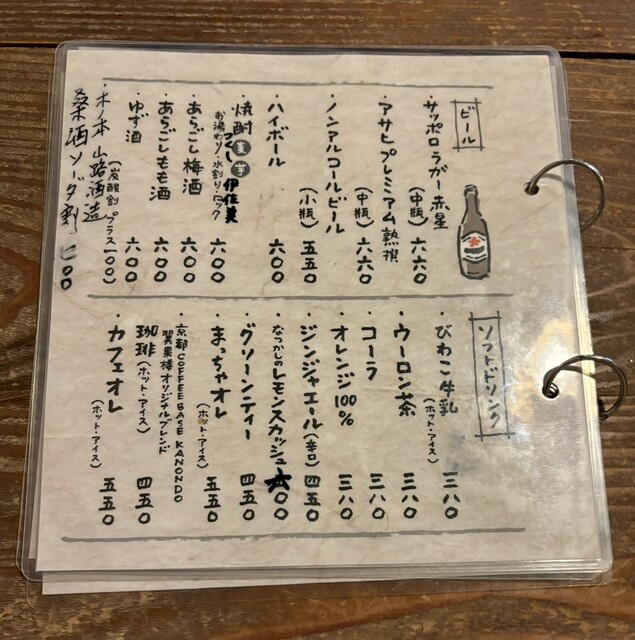 ビール
・サッポロラガー赤星
(中瓶) 六六〇
・アサヒプレミアム熟撰
(中瓶) 六六〇
・ノンアルコールビール
(小瓶) 五五〇
・ハイボール 六〇〇
・焼酎 麦 芋
つくし 伊佐美
お湯わり・水割り・ロック 六〇〇
・あらごし梅酒 六〇〇
・あらごしもも酒 六〇〇
・ゆず酒 六〇〇
(炭酸割プラス一〇〇)
・木ノ本 山路酒造
桑酒ソーダ割 七〇〇
ソフトドリンク
・びわこ牛乳
(ホット・アイス) 三八〇
・ウーロン茶 三八〇
・コーラ 三八〇
・オレンジ100% 三八〇
・ジンジャエール(辛口) 四五〇
・なつかしのレモンスカッシュ 六〇〇
・グリーンティー 四五〇
・まっちゃオレ
(ホット・アイス) 五五〇
京都COFFEE BASE KANONDO
翼果樓オリジナルブレンド
・珈琲(ホット・アイス) 四五〇
・カフェオレ
(ホット・アイス) 五五〇